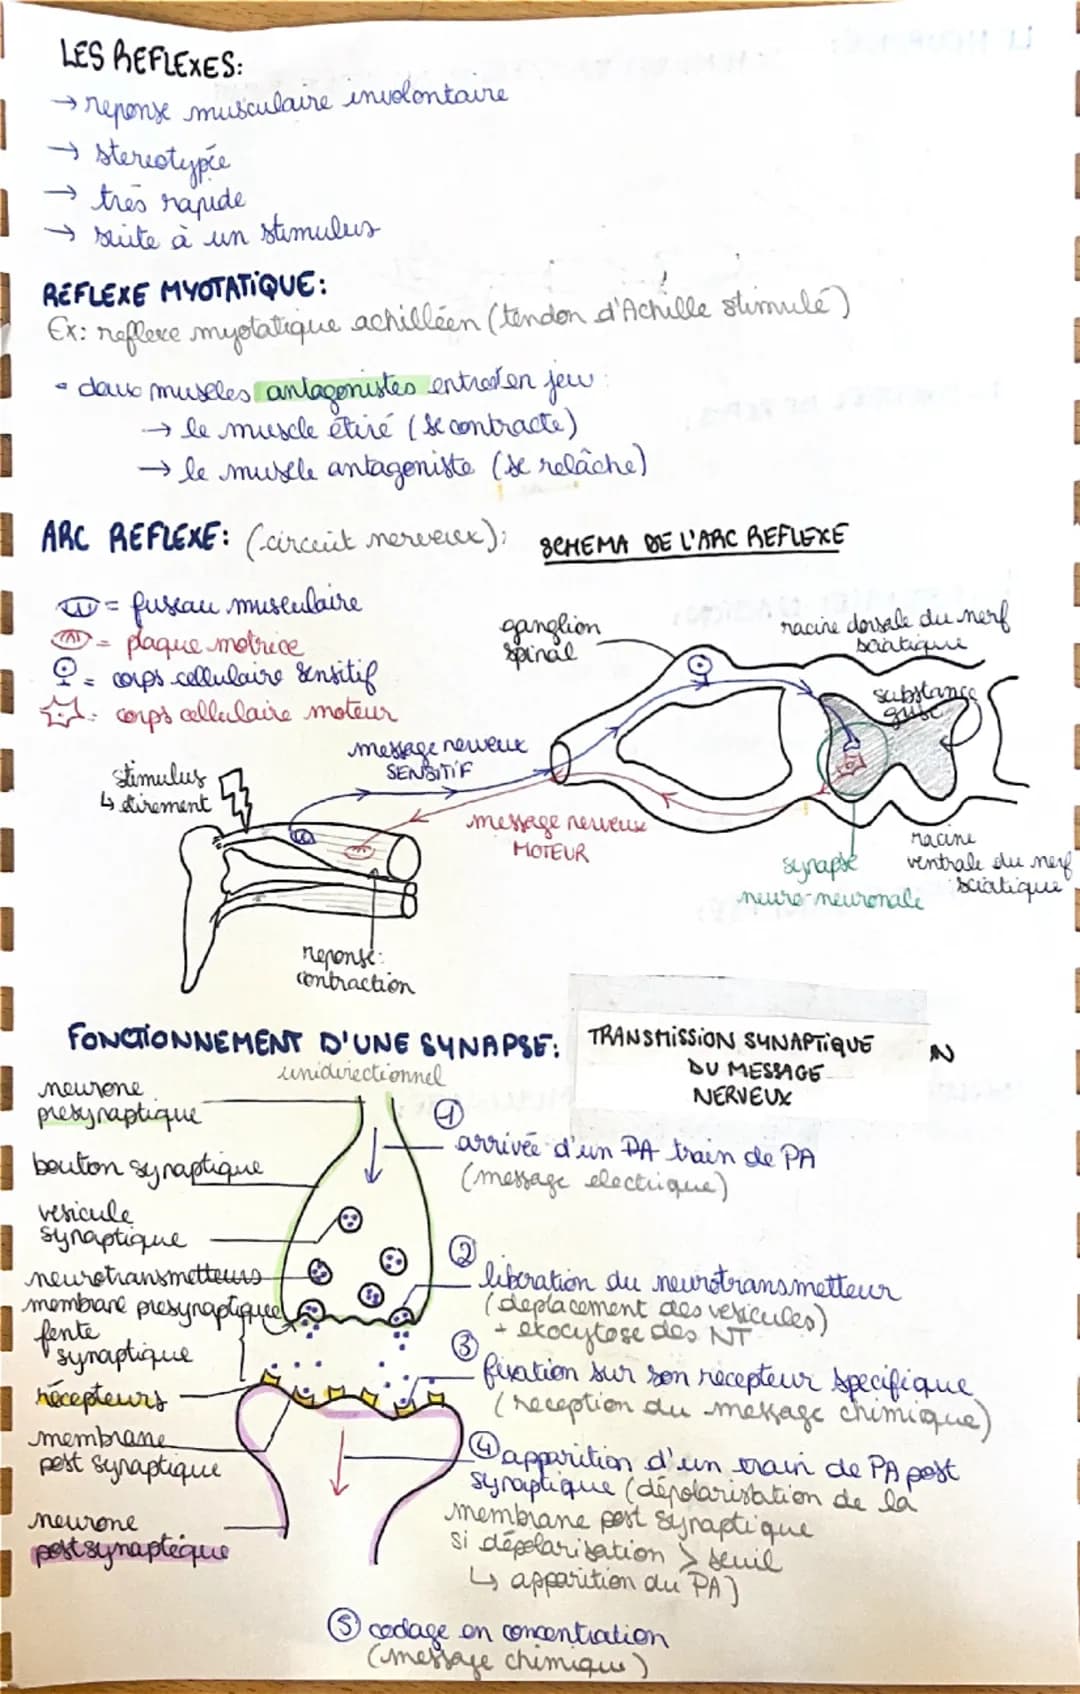 LES REFLEXES:
→ reponse musculaire involontaire
→ stereotypée
→ très rapide
→ suite à un stimulus
REFLEXE MYOTATIQUE:
Ex: reflexe myotatique achilléen (tendon d'Achille stimulé)
• deux muscles antagonistes entrent en jeu:
→ le muscle étiré (se contracte)
→ le muscle antagoniste (se relâche)
ARC REFLEXE: (circuit nerveux):
SCHEMA DE L'ARC REFLEXE
= fuseau musculaire
= plaque motrice
= corps cellulaire sensitif
= corps cellulaire moteur
ganglion
spinal
racine dorsale du nerf
sciatique
substance
grise
message nerveux
SENSITIF
stimulus
↳ étirement
message nerveux
MOTEUR
synapse
neuro-neuronale
racine
ventrale du nerf
sciatique
reponse:
contraction
FONCTIONNEMENT D'UNE SYNAPSE:
unidirectionnel
TRANSMISSION SYNAPTIQUE
DU MESSAGE
NERVEUX
N
neurone
presynaptique
bouton synaptique
vesicule
synaptique
neurotransmetteurs
membrane presynaptique
fente
synaptique
récepteurs
membrane
post synaptique
neurone
postsynaptique
①
arrivée d'un PA train de PA
(message electrique)
②
liberation du neurotransmetteur
(deplacement des vesicules)
+ exocytose des NT
③
fixation sur son recepteur specifique
(reception du message chimique)
④ apparition d'un train de PA post
synaptique (dépolarisation de la
membrane post synaptique
si dépolarisation > seuil
↳ apparition du PA)
⑤ codage en concentration
(message chimique)